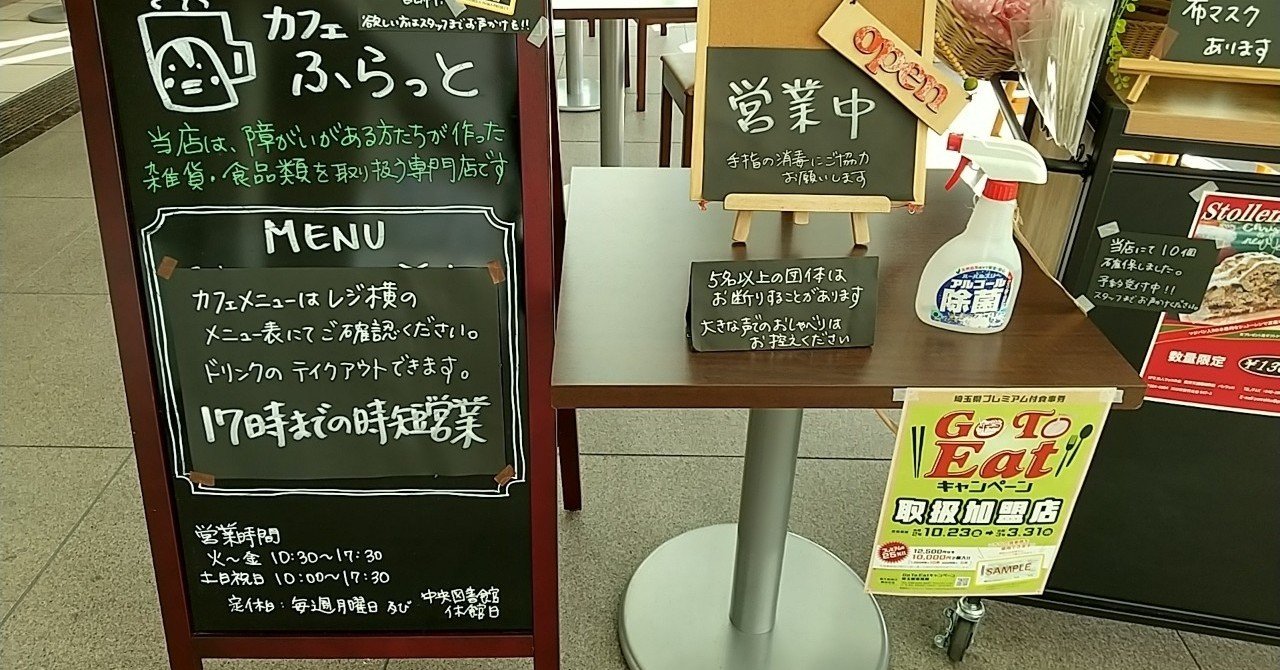 欲しい方はスタッフまでお声がけを!!
カフェ
ふらっと
当店は、障がいがある方たちが作った
雑貨・食品類を取り扱う専門店です
MENU
カフェメニューはレジ横の
メニュー表にてご確認ください。
ドリンクのテイクアウトできます。
17時までの時短営業
営業時間
火～金 10:30～17:30
土日祝日 10:00～17:30
定休日：毎週月曜日及び 中央図書館
休館日
open
営業中
手指の消毒にご協力
お願いします
5名以上の団体は
お断りすることがあります
大きな声でのおしゃべりは
お控えください
アルコール
除菌
布マスク
あります
Stollen
当店にて10個
確保しました。
予約受付中!!
スタッフまでお声がけください
数量限定
埼玉県プレミアム付食事券
Go To
Eat
キャンペーン
取扱加盟店
10.23 3.31
12,500円
10,000円
SAMPLE